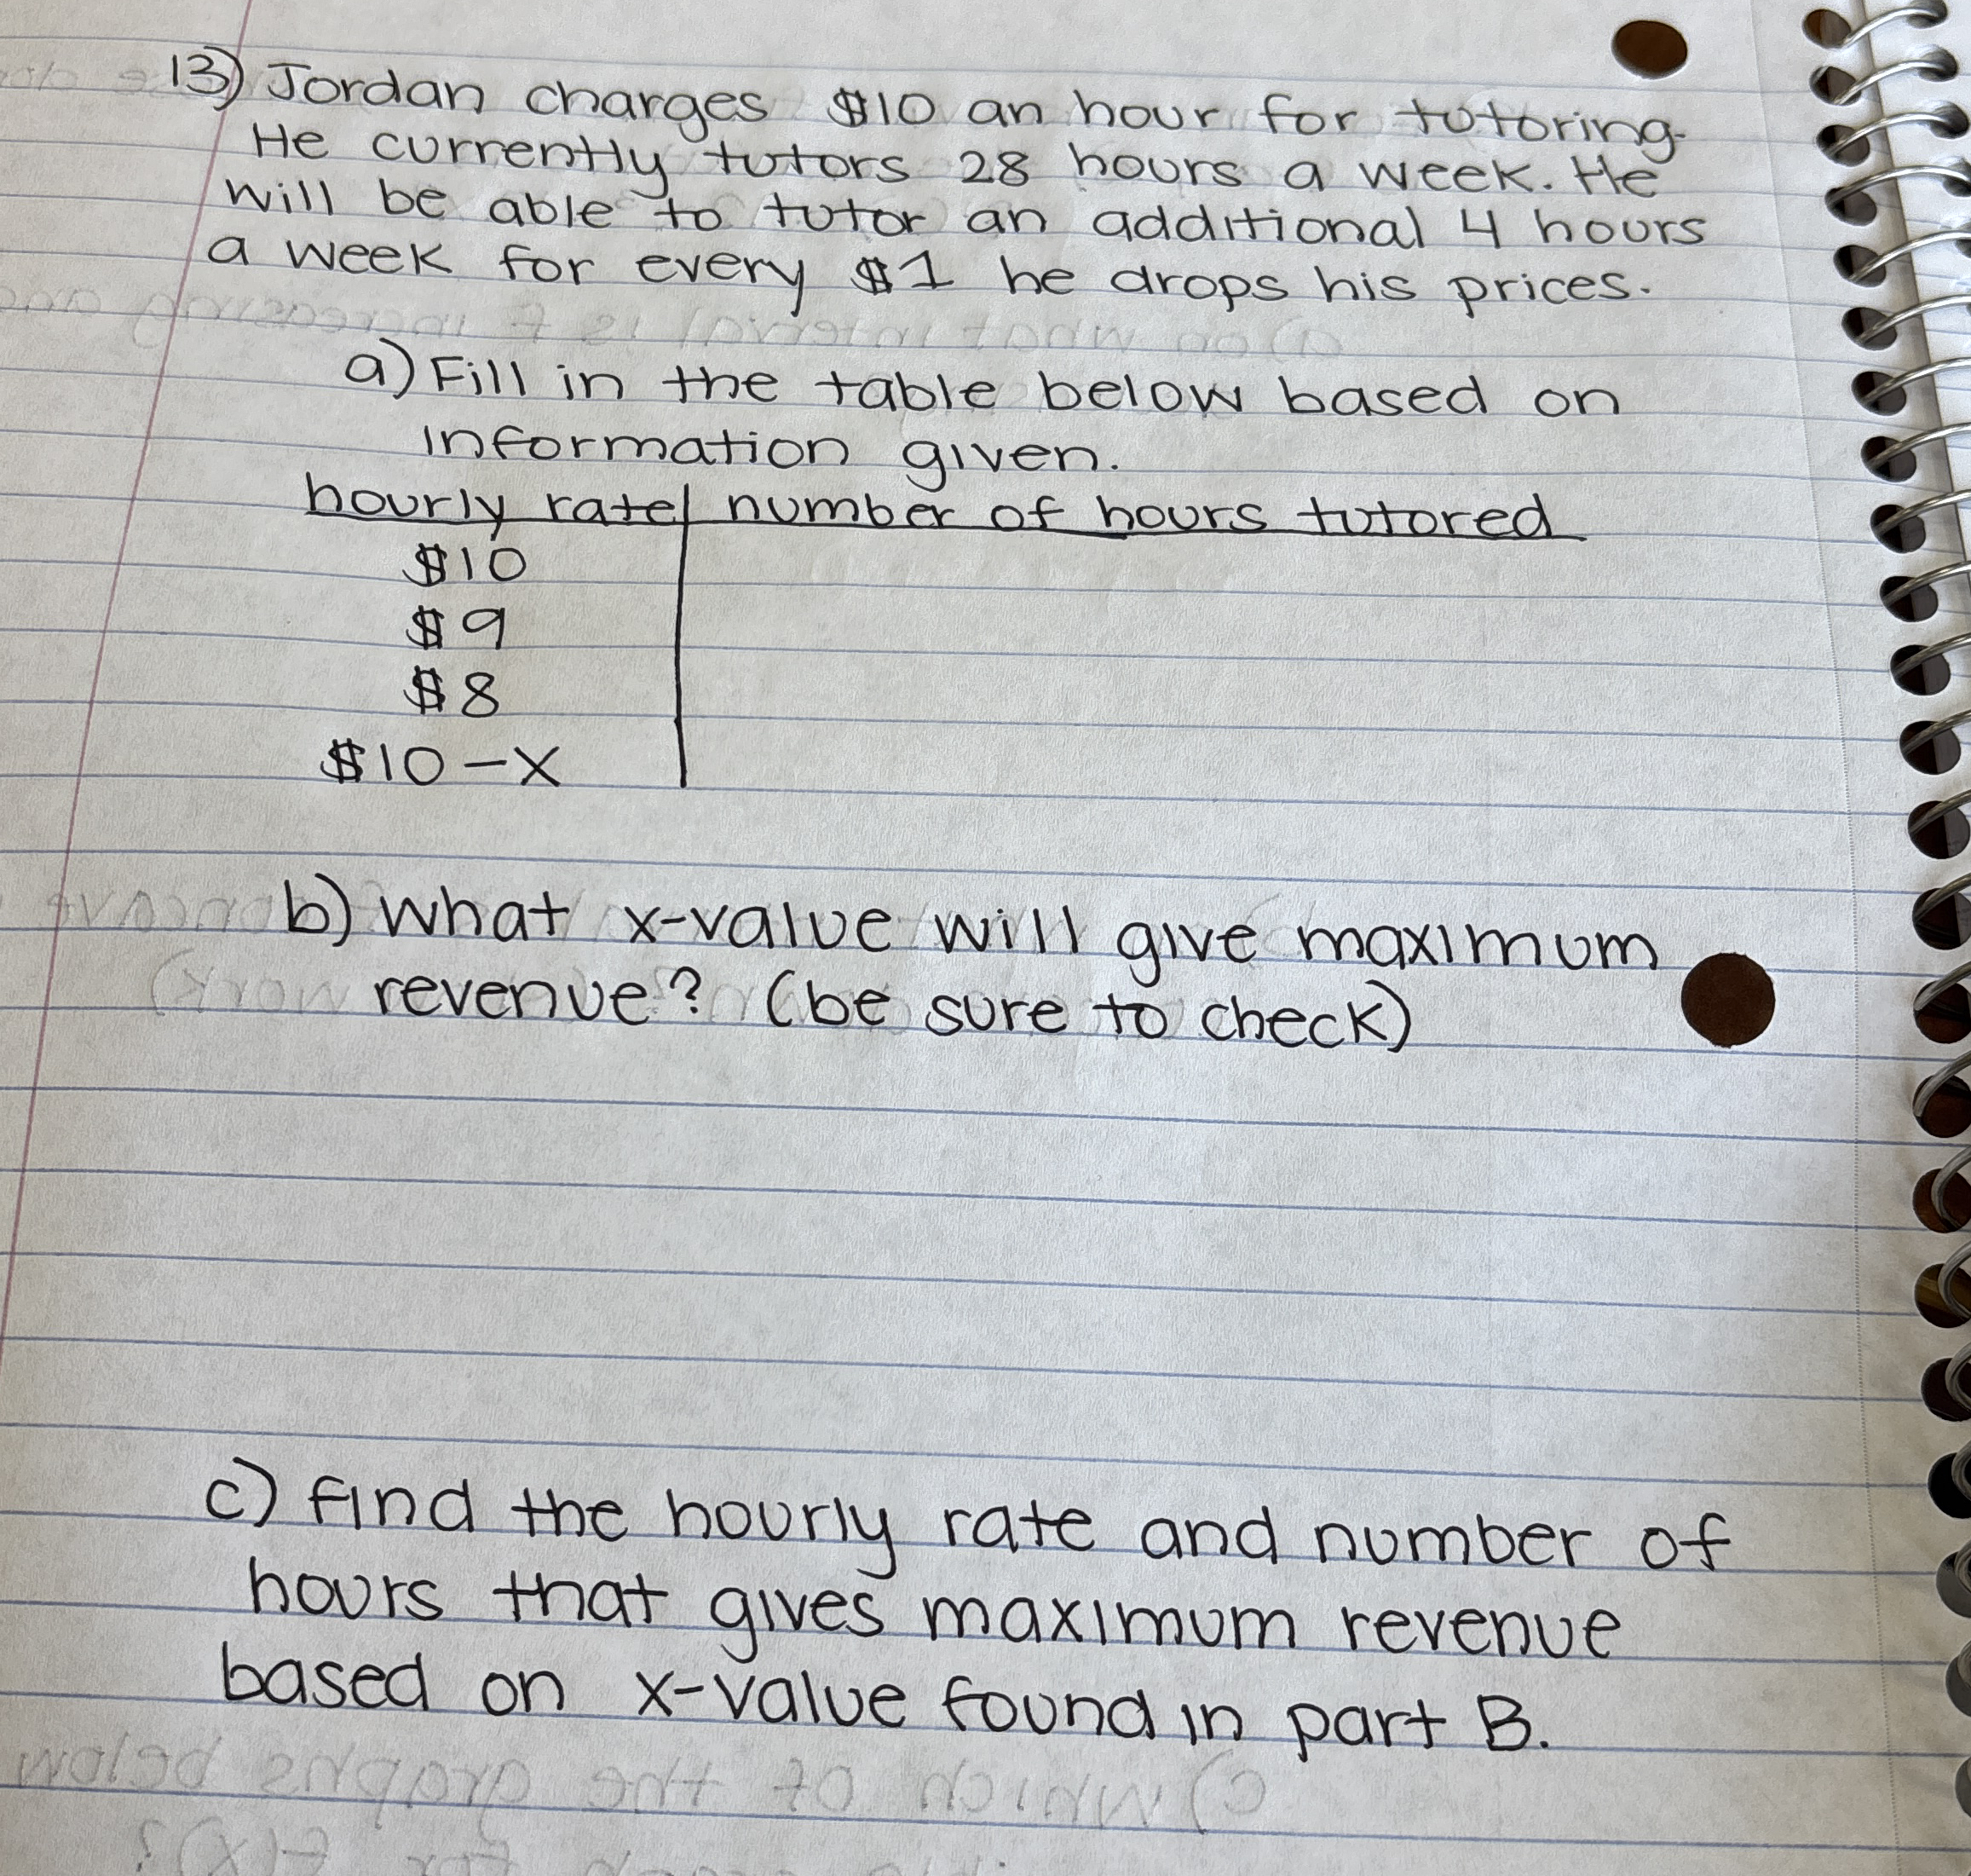 13) Jordan charges $10 an hour for tutoring.
He currently tutors 28 hours a week. He
will be able to tutor an additional 4 hours
a week for every $1 he drops his prices.
a) Fill in the table below based on
information given.
hourly rate | number of hours tutored
$10
$9
$8
$10-x
b) what x-value will give maximum
revenue? (be sure to check)
c) find the hourly rate and number of
hours that gives maximum revenue
based on x-value found in part B.